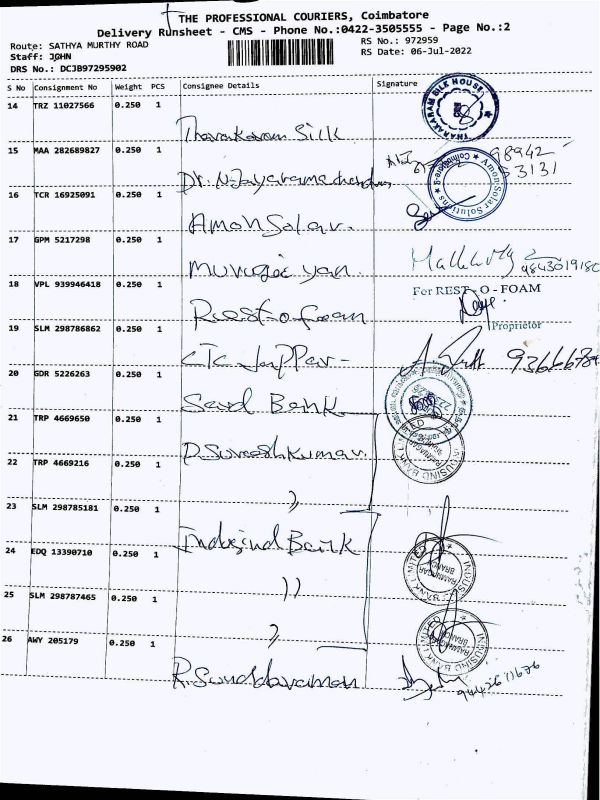 THE PROFESSIONAL COURIERS, Coimbatore
Delivery Runsheet - CMS - Phone No.:0422-3505555 - Page No.:2
Route: SATHYA MURTHY ROAD
RS No.: 972959
Staff: JOHN
RS Date: 06-Jul-2022
DRS No.: DCJB97295902
S No Consignment No Weight PCS Consignee Details Signature
14 TRZ 11027566 0.250 1 Tharakaram Silk
THARAKARAM SILK HOUSE
15 MAA 282689827 0.250 1 Dr. N. Jayaramachandran
98942
53131
16 TCR 16925091 0.250 1 Amon Solar.
Amon Solar Solutions
17 GPM 5217298 0.250 1 Murugaiyan
9843019180
18 VPL 939946418 0.250 1 Rest-o-foam
For REST - O - FOAM
Proprietor
19 SLM 298786862 0.250 1
20 GDR 5226263 0.250 1 Bank
21 TRP 4669650 0.250 1 D. Sureshkumar
INDUSIND BANK LIMITED
22 TRP 4669216 0.250 1 ))
23 SLM 298785181 0.250 1 Indusind Bank
24 EDQ 13390710 0.250 1 ))
INDUSIND BANK LIMITED
RAMNAGAR BRANCH
25 SLM 298787465 0.250 1 ))
INDUSIND BANK LIMITED
RAMNAGAR BRANCH
26 AWY 205179 0.250 1 R. Sounddaraman